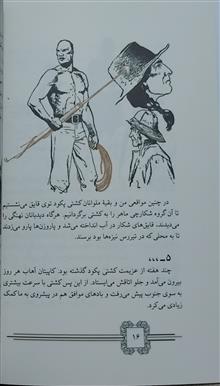 در چنین مواقعی من و بقیهٔ ملوانان کشتی پکود توی قایق می‌نشستیم
تا آن گروه شکارچی ماهر را به کشتی برگردانیم. هرگاه دیدبانان نهنگی را
می‌دیدند، قایق‌های شکار در آب انداخته می‌شد و پاروزن‌ها پارو می‌زدند
تا به محلی که در تیررس نیزه‌ها بود برسند.
۵ـ ...
چند هفته از عزیمت کشتی پکود گذشته بود. کاپیتان آهاب هر روز
بیرون می‌آمد و جلو اتاقش می‌ایستاد. از این پس کشتی با سرعت بیشتری
به سوی جنوب پیش می‌رفت و بادهای موافق هم در پیشروی به ما کمک
زیادی می‌کرد.
۱۶